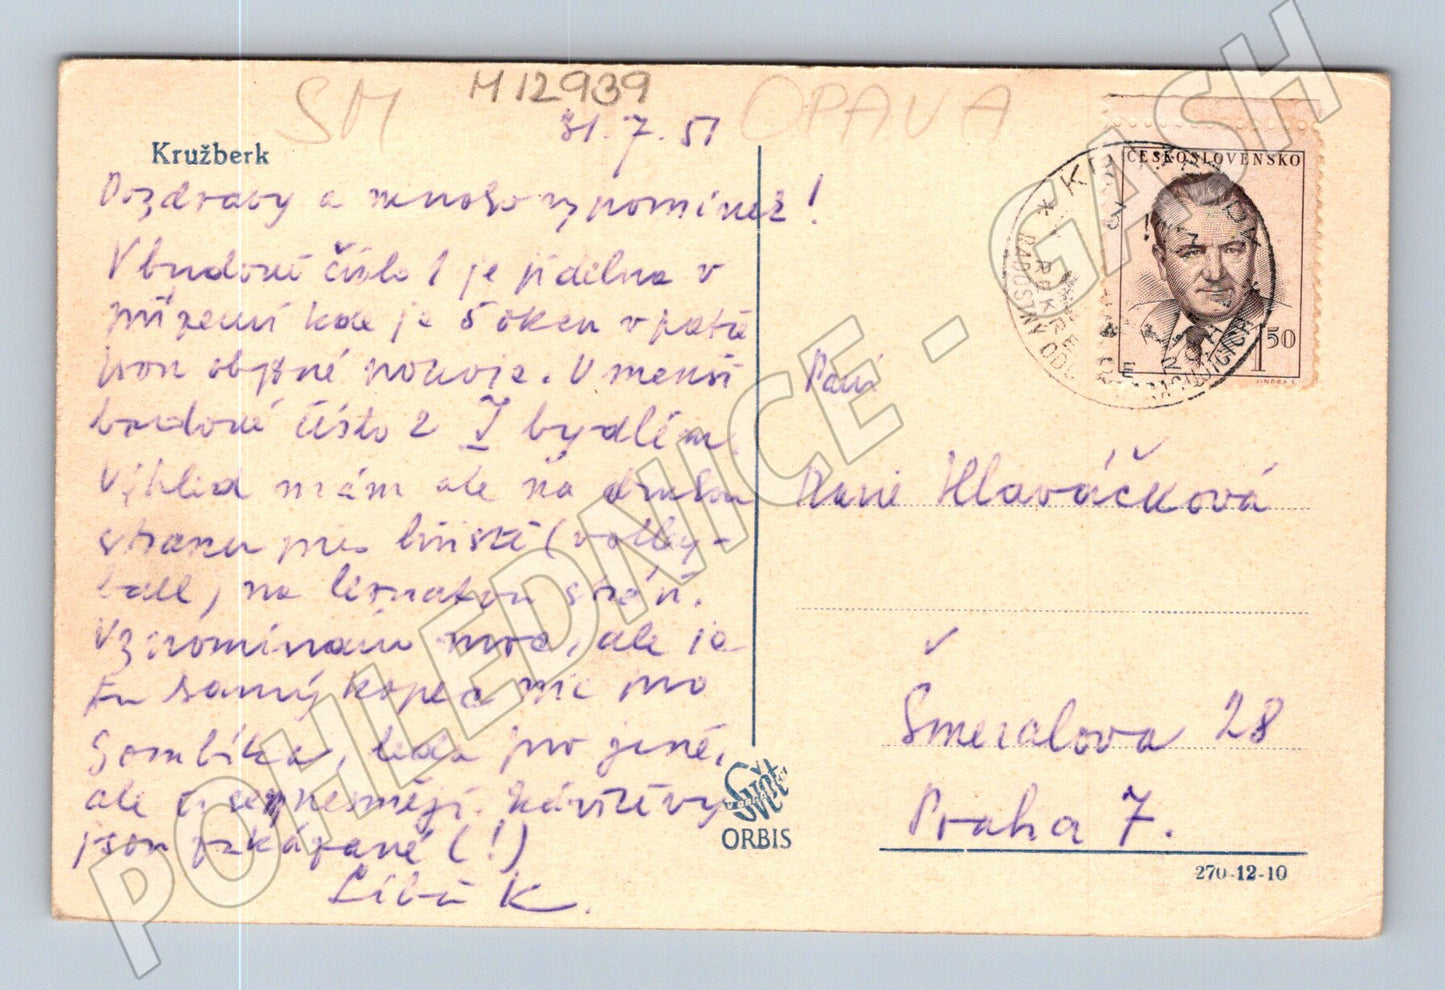 SM
M12939
OPAVA
31.7.51
Kružberk
Pozdravy a mnoho vzpomínek!
V budově číslo 1 je jídelna v
přízemí kde je 5 oken v patře
jsou obytné pokoje. V menší
budově číslo 2 I bydlím.
Výhled mám ale na druhou
stranu přes hřiště (volley-
ball) na
Vzpomínám moc, ale je
tu samý kopec nic pro
Bombíka, leda pro jiné,
ale
jsou zakázané (!)
Liba K.
Paní
Marie Hlaváčková
Šmeralova 28
Praha 7.
ČESKOSLOVENSKO
1 50
JINDRA S.
Svět
ORBIS
270-12-10
POHLEDNICE - GASH